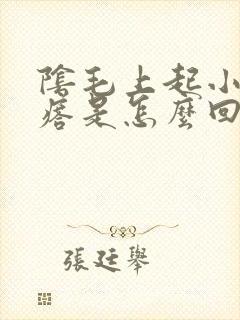 陰毛上起小
痞是怎麼回
張廷舉